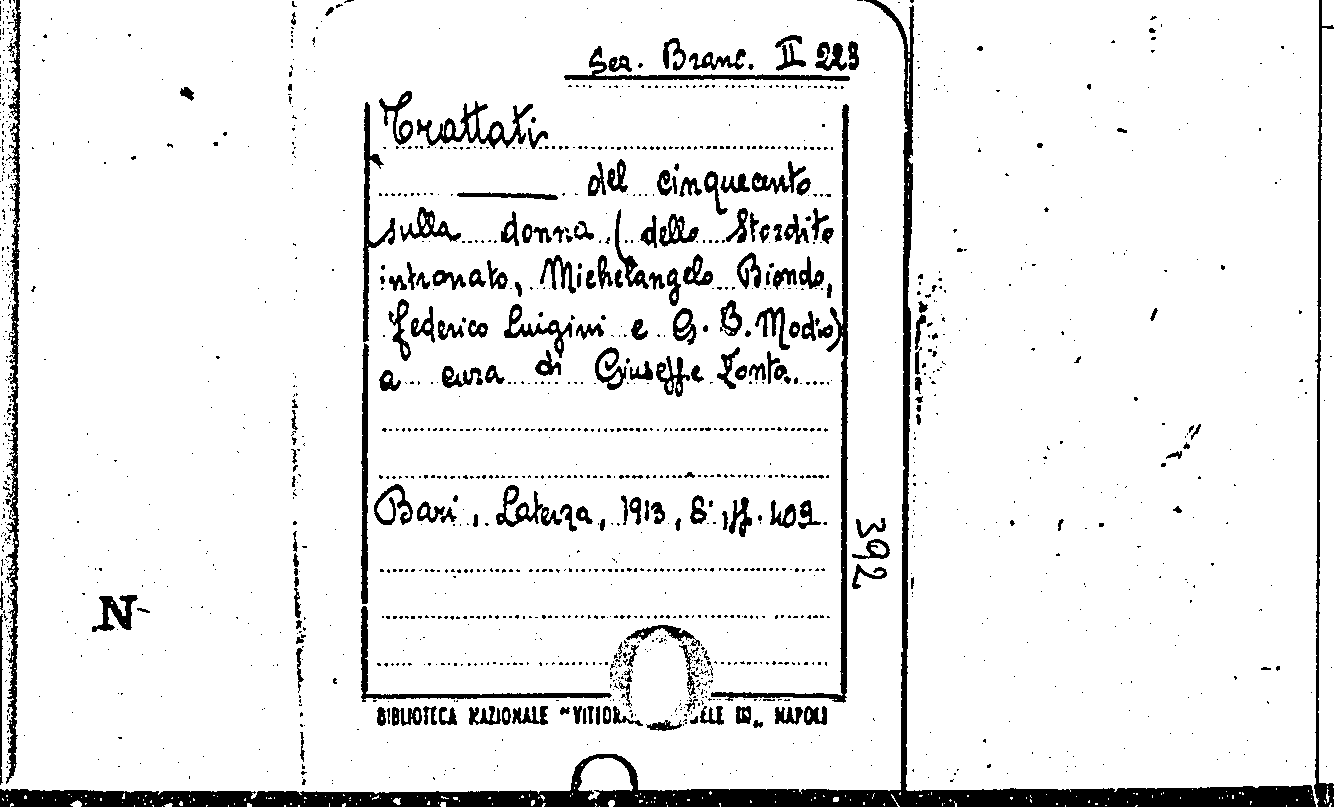 Sez. Branc. II 223
Trattati
del cinquecento
sulla donna (dello Stordito
intronato, Michelangelo Biondo,
Federico Luigini e G. B. Modio)
a cura di Giuseppe Zonta.
Bari, Laterza, 1913, 8°, pp. 409.
392
N
BIBLIOTECA NAZIONALE "VITTORIO EMANUELE III„ NAPOLI